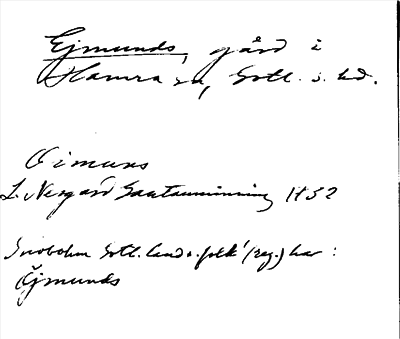 Ejmunds, gård i
Hamra sn, Gotl. s. hd.
Oimuns
L. Nergård Gautauminning 1852
Snöbohm Gotl. land o. folk (reg.) har :
Öjmunds